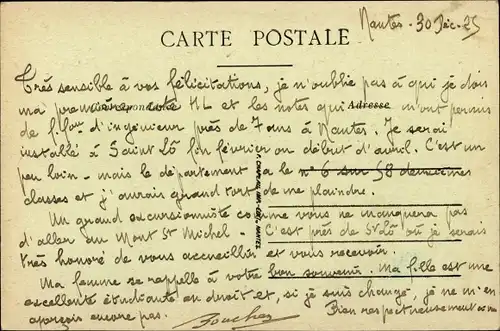 Nantes - 30 Déc. 25
CARTE POSTALE
Correspondance
Adresse
Très sensible à vos félicitations, je n'oublie pas à qui je dois
ma première cote HL et les notes qui m'ont permis
de d'ingénieur près de 7 ans à Nantes. Je serai
installé à Saint Lô fin février ou début d'avril. C'est un
peu loin - mais le département a le n° 6 sur 58 deuxièmes
classes et j'aurais grand tort de me plaindre.
Un grand excursionniste comme vous ne manquera pas
d'aller au Mont St Michel - C'est près de St Lô où je serais
très honoré de vous accueillir et vous recevoir.
Ma femme se rappelle à votre bon souvenir. Ma fille est une
excellente étudiante en droit et, si je suis changé, je ne m'en
aperçois encore pas.
Bien respectueusement